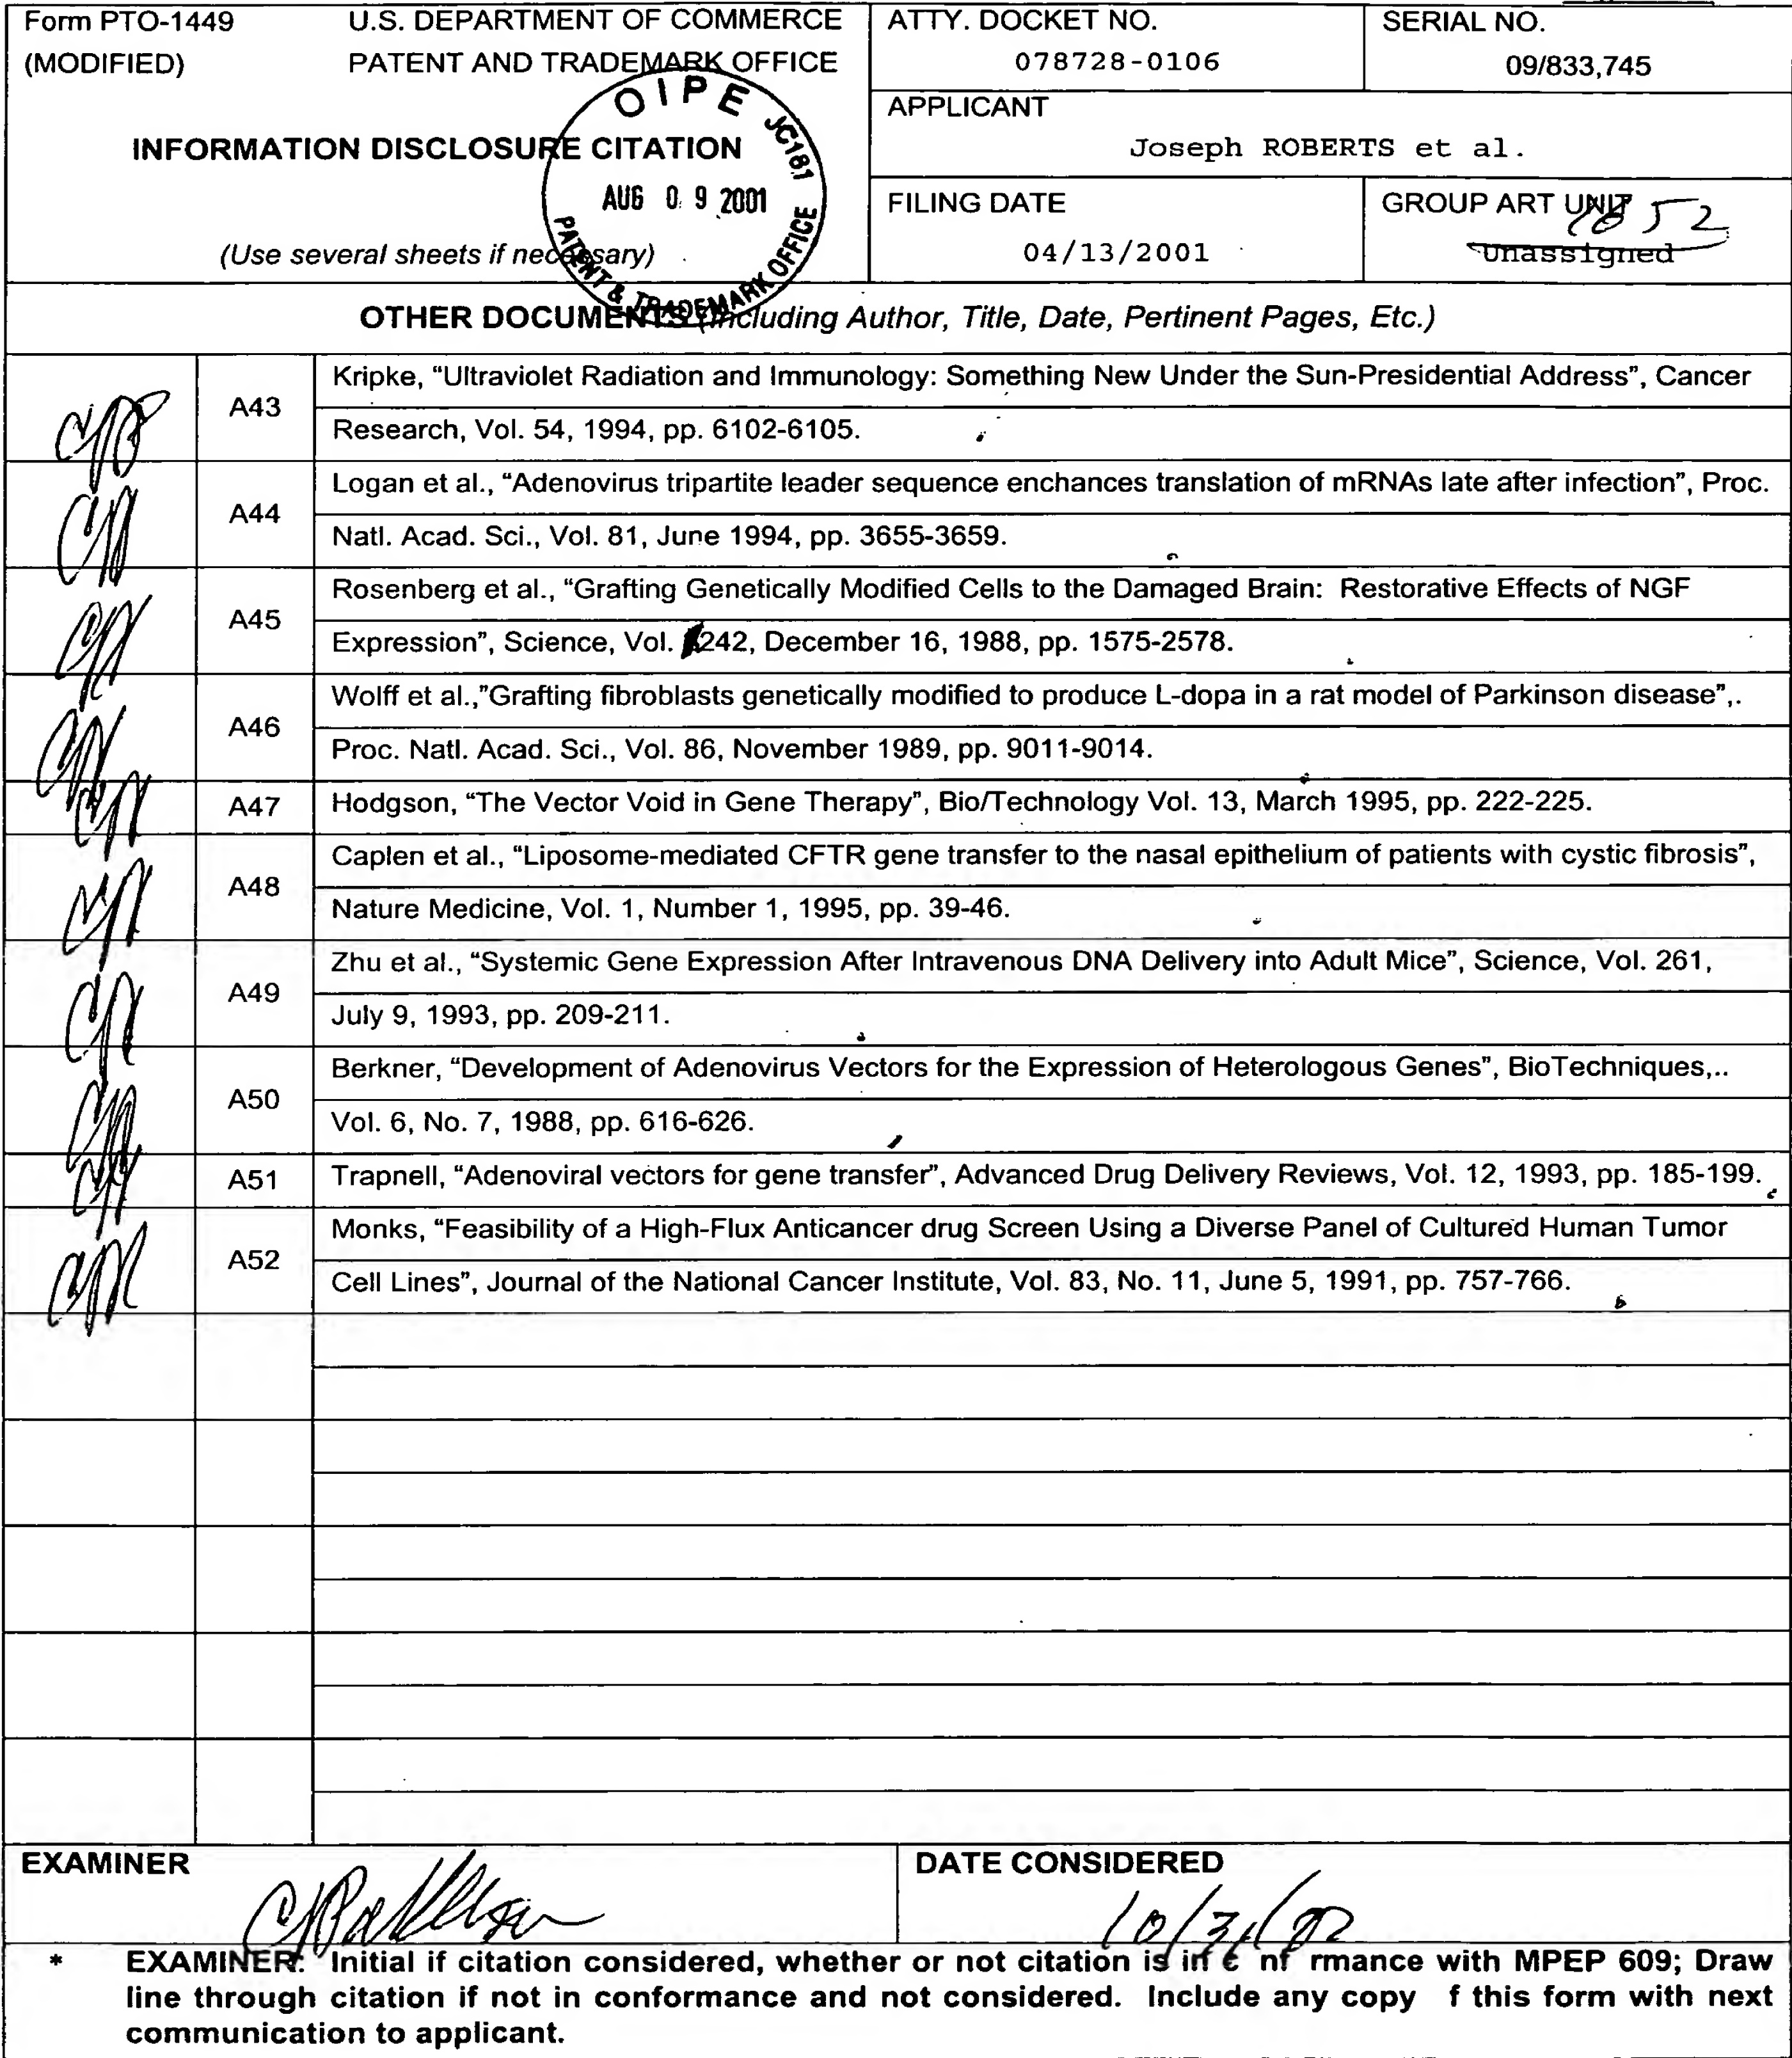 Form PTO-1449 U.S. DEPARTMENT OF COMMERCE
(MODIFIED) PATENT AND TRADEMARK OFFICE
INFORMATION DISCLOSURE CITATION
(Use several sheets if necessary)
OIPE JC181
AUG 09 2001
PATENT & TRADEMARK OFFICE
ATTY. DOCKET NO.
078728-0106
SERIAL NO.
09/833,745
APPLICANT
Joseph ROBERTS et al.
FILING DATE
04/13/2001
GROUP ART UNIT
1652
Unassigned
OTHER DOCUMENTS (Including Author, Title, Date, Pertinent Pages, Etc.)
A43
Kripke, “Ultraviolet Radiation and Immunology: Something New Under the Sun-Presidential Address”, Cancer
Research, Vol. 54, 1994, pp. 6102-6105.
A44
Logan et al., “Adenovirus tripartite leader sequence enchances translation of mRNAs late after infection”, Proc.
Natl. Acad. Sci., Vol. 81, June 1994, pp. 3655-3659.
A45
Rosenberg et al., “Grafting Genetically Modified Cells to the Damaged Brain: Restorative Effects of NGF
Expression”, Science, Vol. 242, December 16, 1988, pp. 1575-2578.
A46
Wolff et al.,”Grafting fibroblasts genetically modified to produce L-dopa in a rat model of Parkinson disease”,.
Proc. Natl. Acad. Sci., Vol. 86, November 1989, pp. 9011-9014.
A47
Hodgson, “The Vector Void in Gene Therapy”, Bio/Technology Vol. 13, March 1995, pp. 222-225.
A48
Caplen et al., “Liposome-mediated CFTR gene transfer to the nasal epithelium of patients with cystic fibrosis”,
Nature Medicine, Vol. 1, Number 1, 1995, pp. 39-46.
A49
Zhu et al., “Systemic Gene Expression After Intravenous DNA Delivery into Adult Mice”, Science, Vol. 261,
July 9, 1993, pp. 209-211.
A50
Berkner, “Development of Adenovirus Vectors for the Expression of Heterologous Genes”, BioTechniques,..
Vol. 6, No. 7, 1988, pp. 616-626.
A51
Trapnell, “Adenoviral vectors for gene transfer”, Advanced Drug Delivery Reviews, Vol. 12, 1993, pp. 185-199.
A52
Monks, “Feasibility of a High-Flux Anticancer drug Screen Using a Diverse Panel of Cultured Human Tumor
Cell Lines”, Journal of the National Cancer Institute, Vol. 83, No. 11, June 5, 1991, pp. 757-766.
EXAMINER
DATE CONSIDERED
10/31/02
* EXAMINER: Initial if citation considered, whether or not citation is in c nf rmance with MPEP 609; Draw
line through citation if not in conformance and not considered. Include any copy f this form with next
communication to applicant.